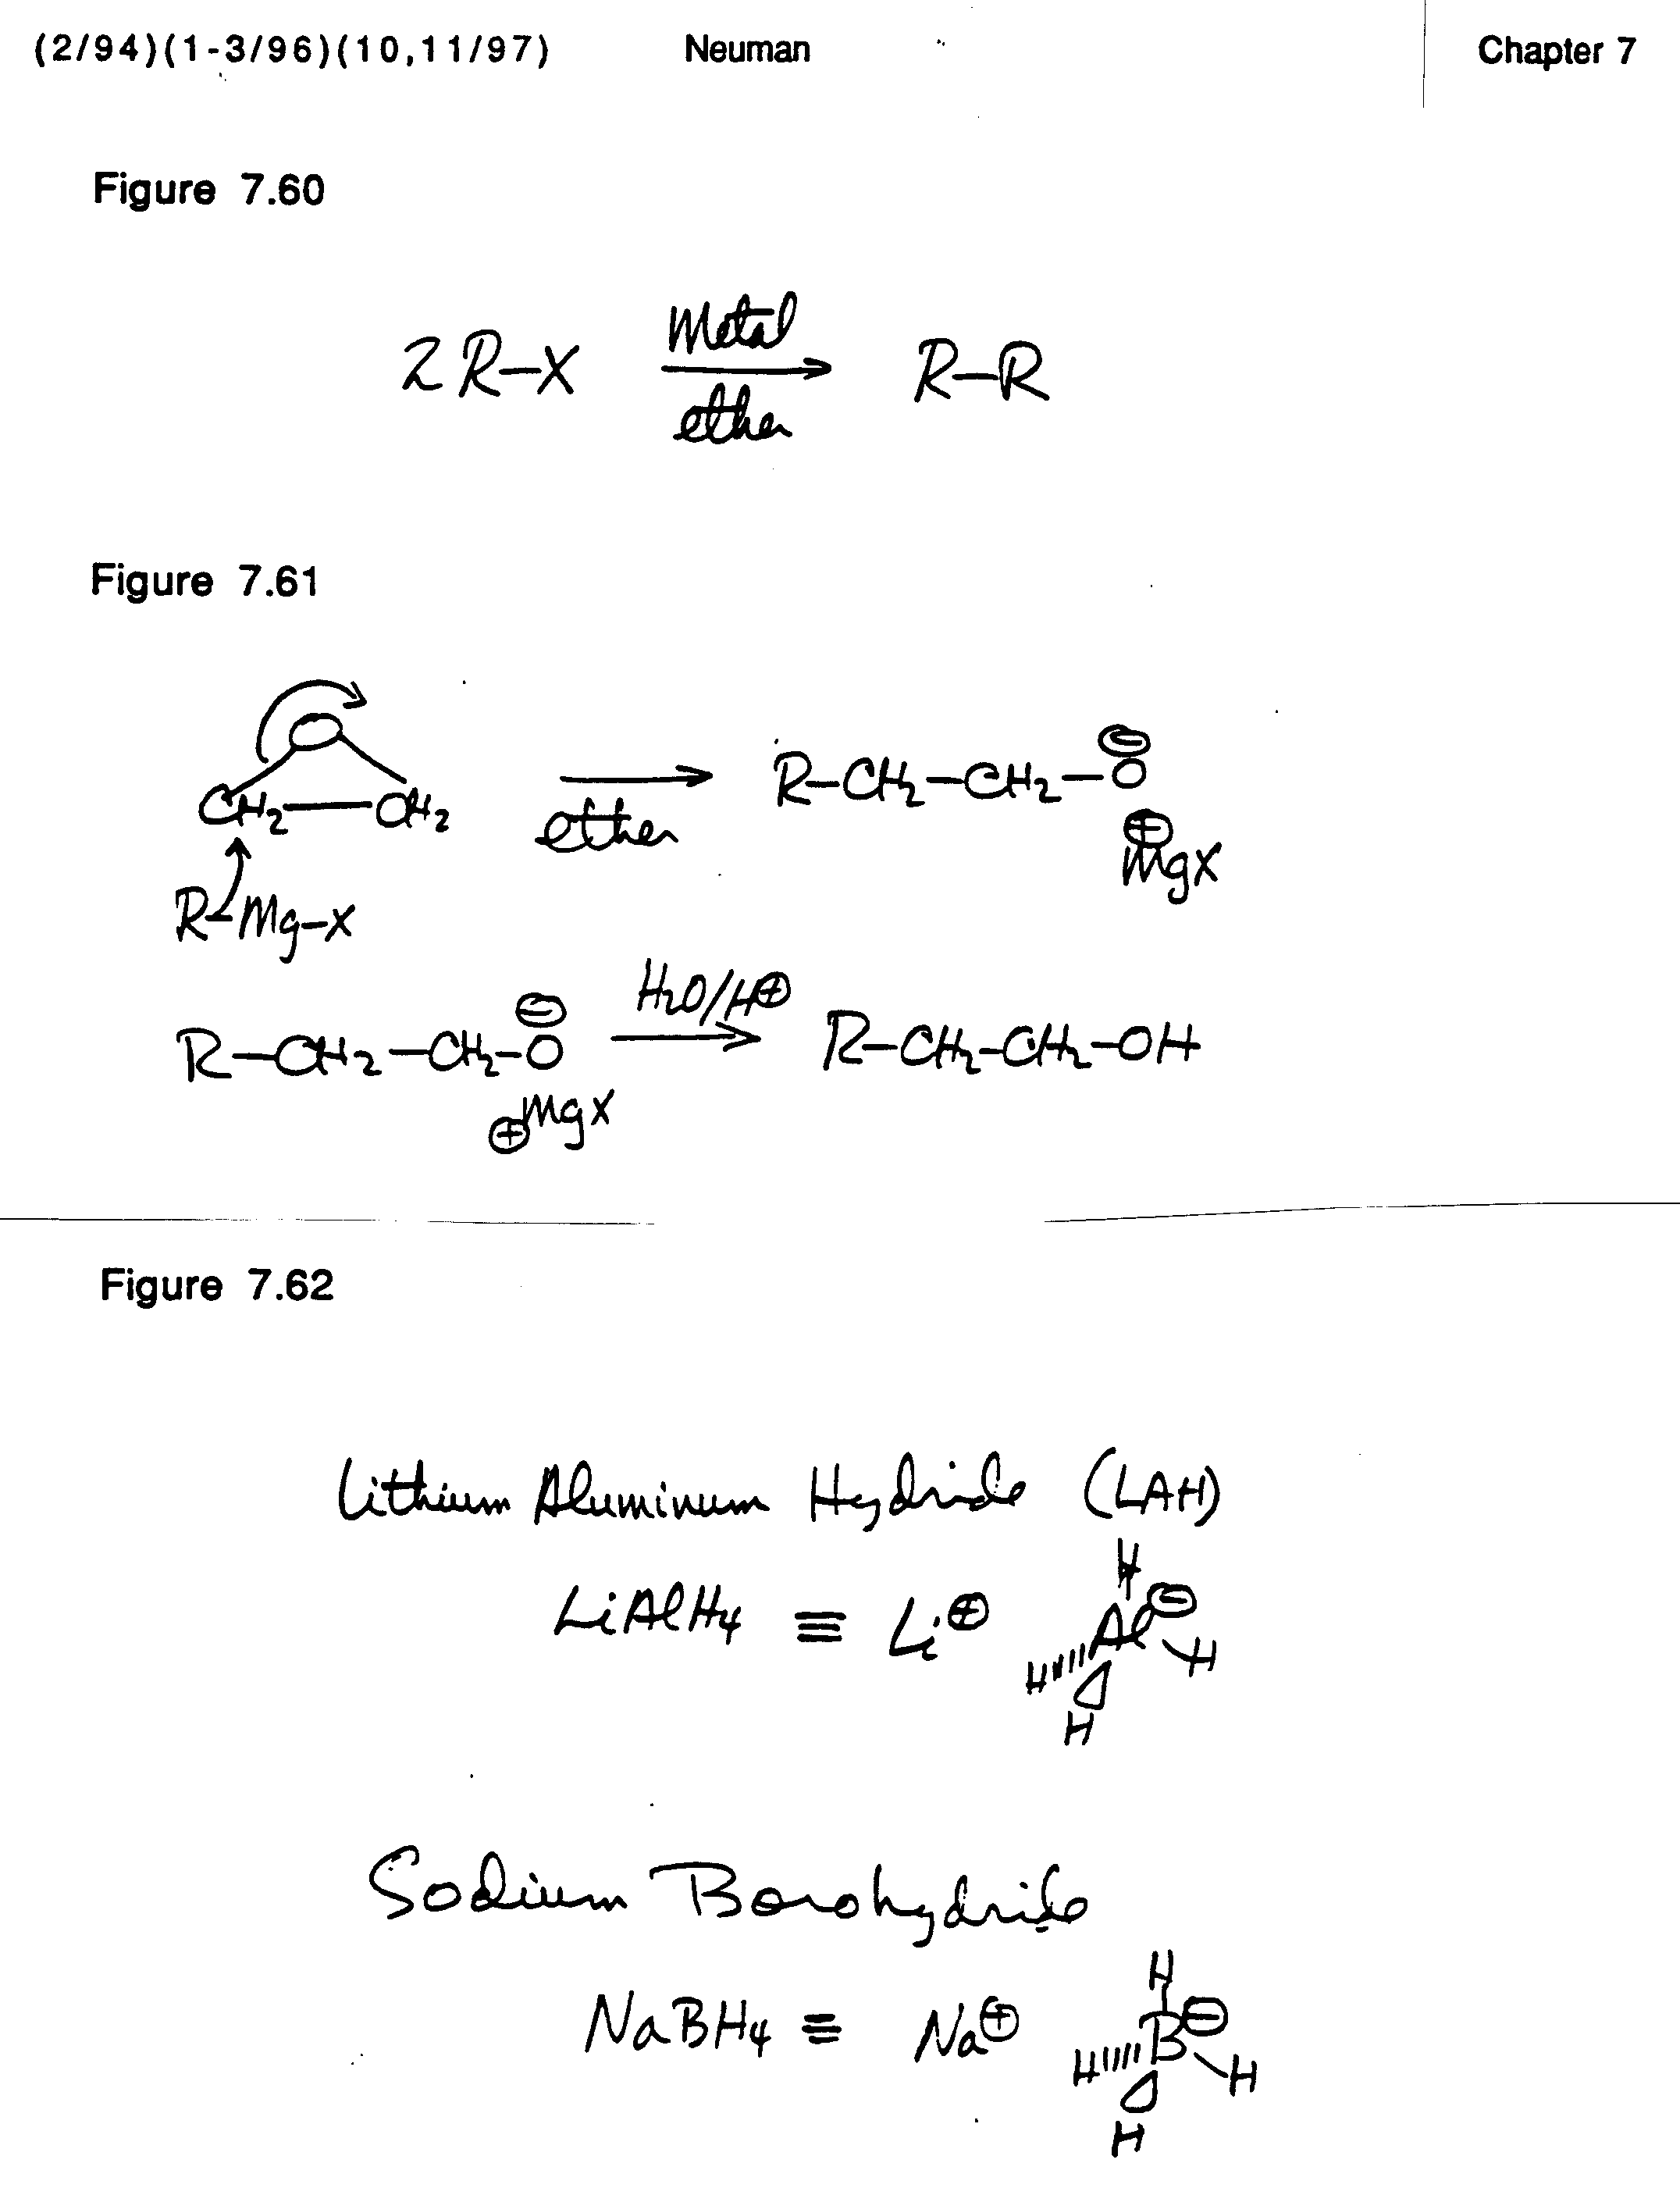 (2/94)(1-3/96)(10,11/97) Neuman Chapter 7
Figure 7.60
2 R–X Metal ether → R–R
Figure 7.61
O
CH₂–CH₂ → ether R–CH₂–CH₂–O⊖ ⊕MgX
R–Mg–X
R–CH₂–CH₂–O⊖ ⊕MgX H₂O/H⊕ → R–CH₂–CH₂–OH
Figure 7.62
Lithium Aluminum Hydride (LAH)
H
LiAlH₄ ≡ Li⊕ Al⊖
H H
H
Sodium Borohydride
H
NaBH₄ ≡ Na⊕ B⊖
H H
H